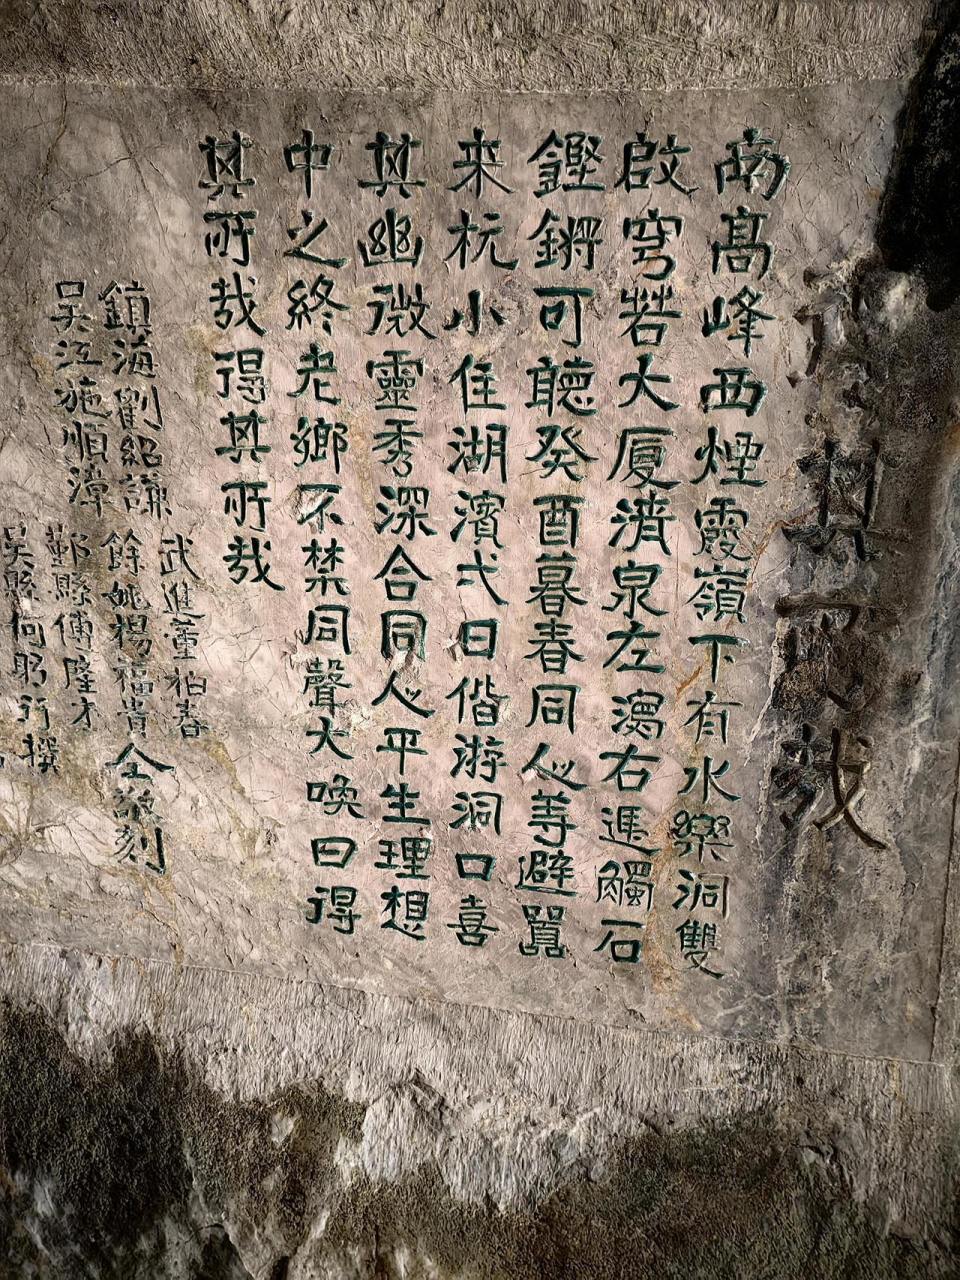 得其所哉
南高峰西煙霞嶺下有水樂洞雙
啟穹若大厦清泉左瀉右逓觸石
鏗鏘可聽癸酉暮春同人等避囂
来杭小住湖濱弍日偕游洞口喜
其幽微靈秀深合同人平生理想
中之終老鄉不禁同聲大喚曰得
其所哉得其所哉
武進董柏春
鎮海劉紹謙 餘姚楊福貴 仝敬刻
吳江施順漳 鄞縣傅隆才
吳縣何躬行撰